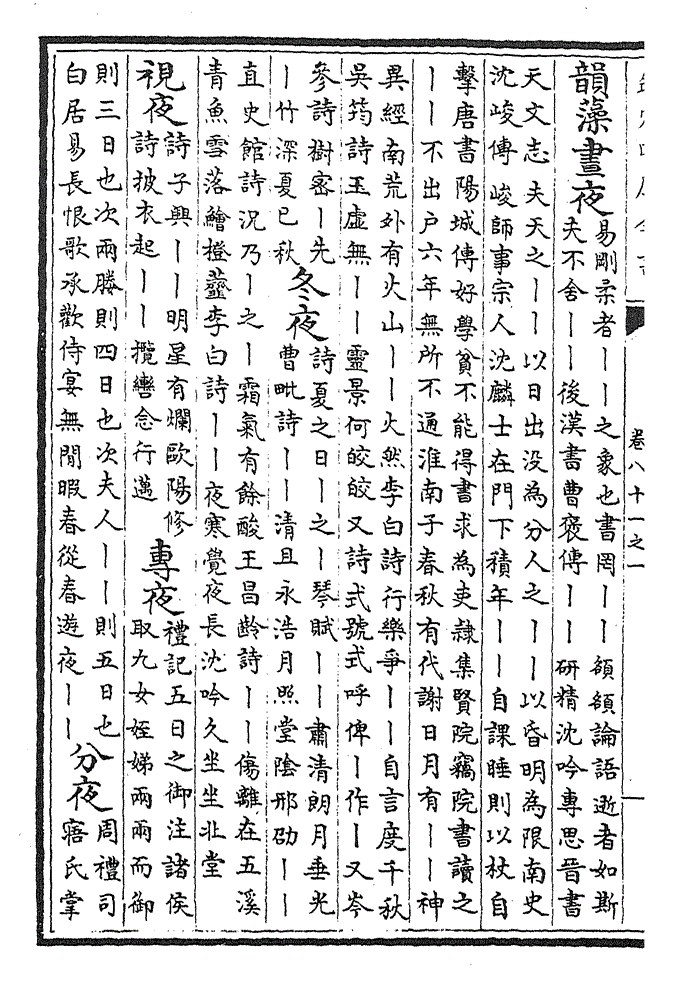 卷八十一之一
韻藻晝夜
易剛柔者丨丨之象也書罔丨丨頟頟論語逝者如斯
夫不舍丨丨後漢書曹褒傳丨丨研精沈吟專思晉書
天文志夫天之丨丨以日出没為分人之丨丨以昏明為限南史
沈峻傳峻師事宗人沈麟士在門下積年丨丨自課睡則以杖自
擊唐書陽城傳好學貧不能得書求為吏隸集賢院竊院書讀之
丨丨不出户六年無所不通淮南子春秋有代謝日月有丨丨神
異經南荒外有火山丨丨火然李白詩行樂爭丨丨自言度千秋
吳筠詩玉虛無丨丨靈景何皎皎又詩式號式呼俾丨作丨又岑
參詩樹密丨先
丨竹深夏已秋
冬夜
詩夏之日丨之丨琴賦丨丨肅清朗月垂光
曹毗詩丨丨清且永浩月照堂陰邢劭丨丨
直史館詩況乃丨之丨霜氣有餘酸王昌齡詩丨丨傷離在五溪
青魚雪落鱠橙虀李白詩丨丨夜寒覺夜長沈吟久坐坐北堂
視夜
詩子興丨丨明星有爛歐陽修
詩披衣起丨丨攬轡念行邁
專夜
禮記五日之御注諸侯
取九女姪娣兩兩而御
則三日也次兩勝則四日也次夫人丨丨則五日也
白居易長恨歌承歡侍宴無閒暇春從春遊夜丨丨
分夜
周禮司
寤氏掌